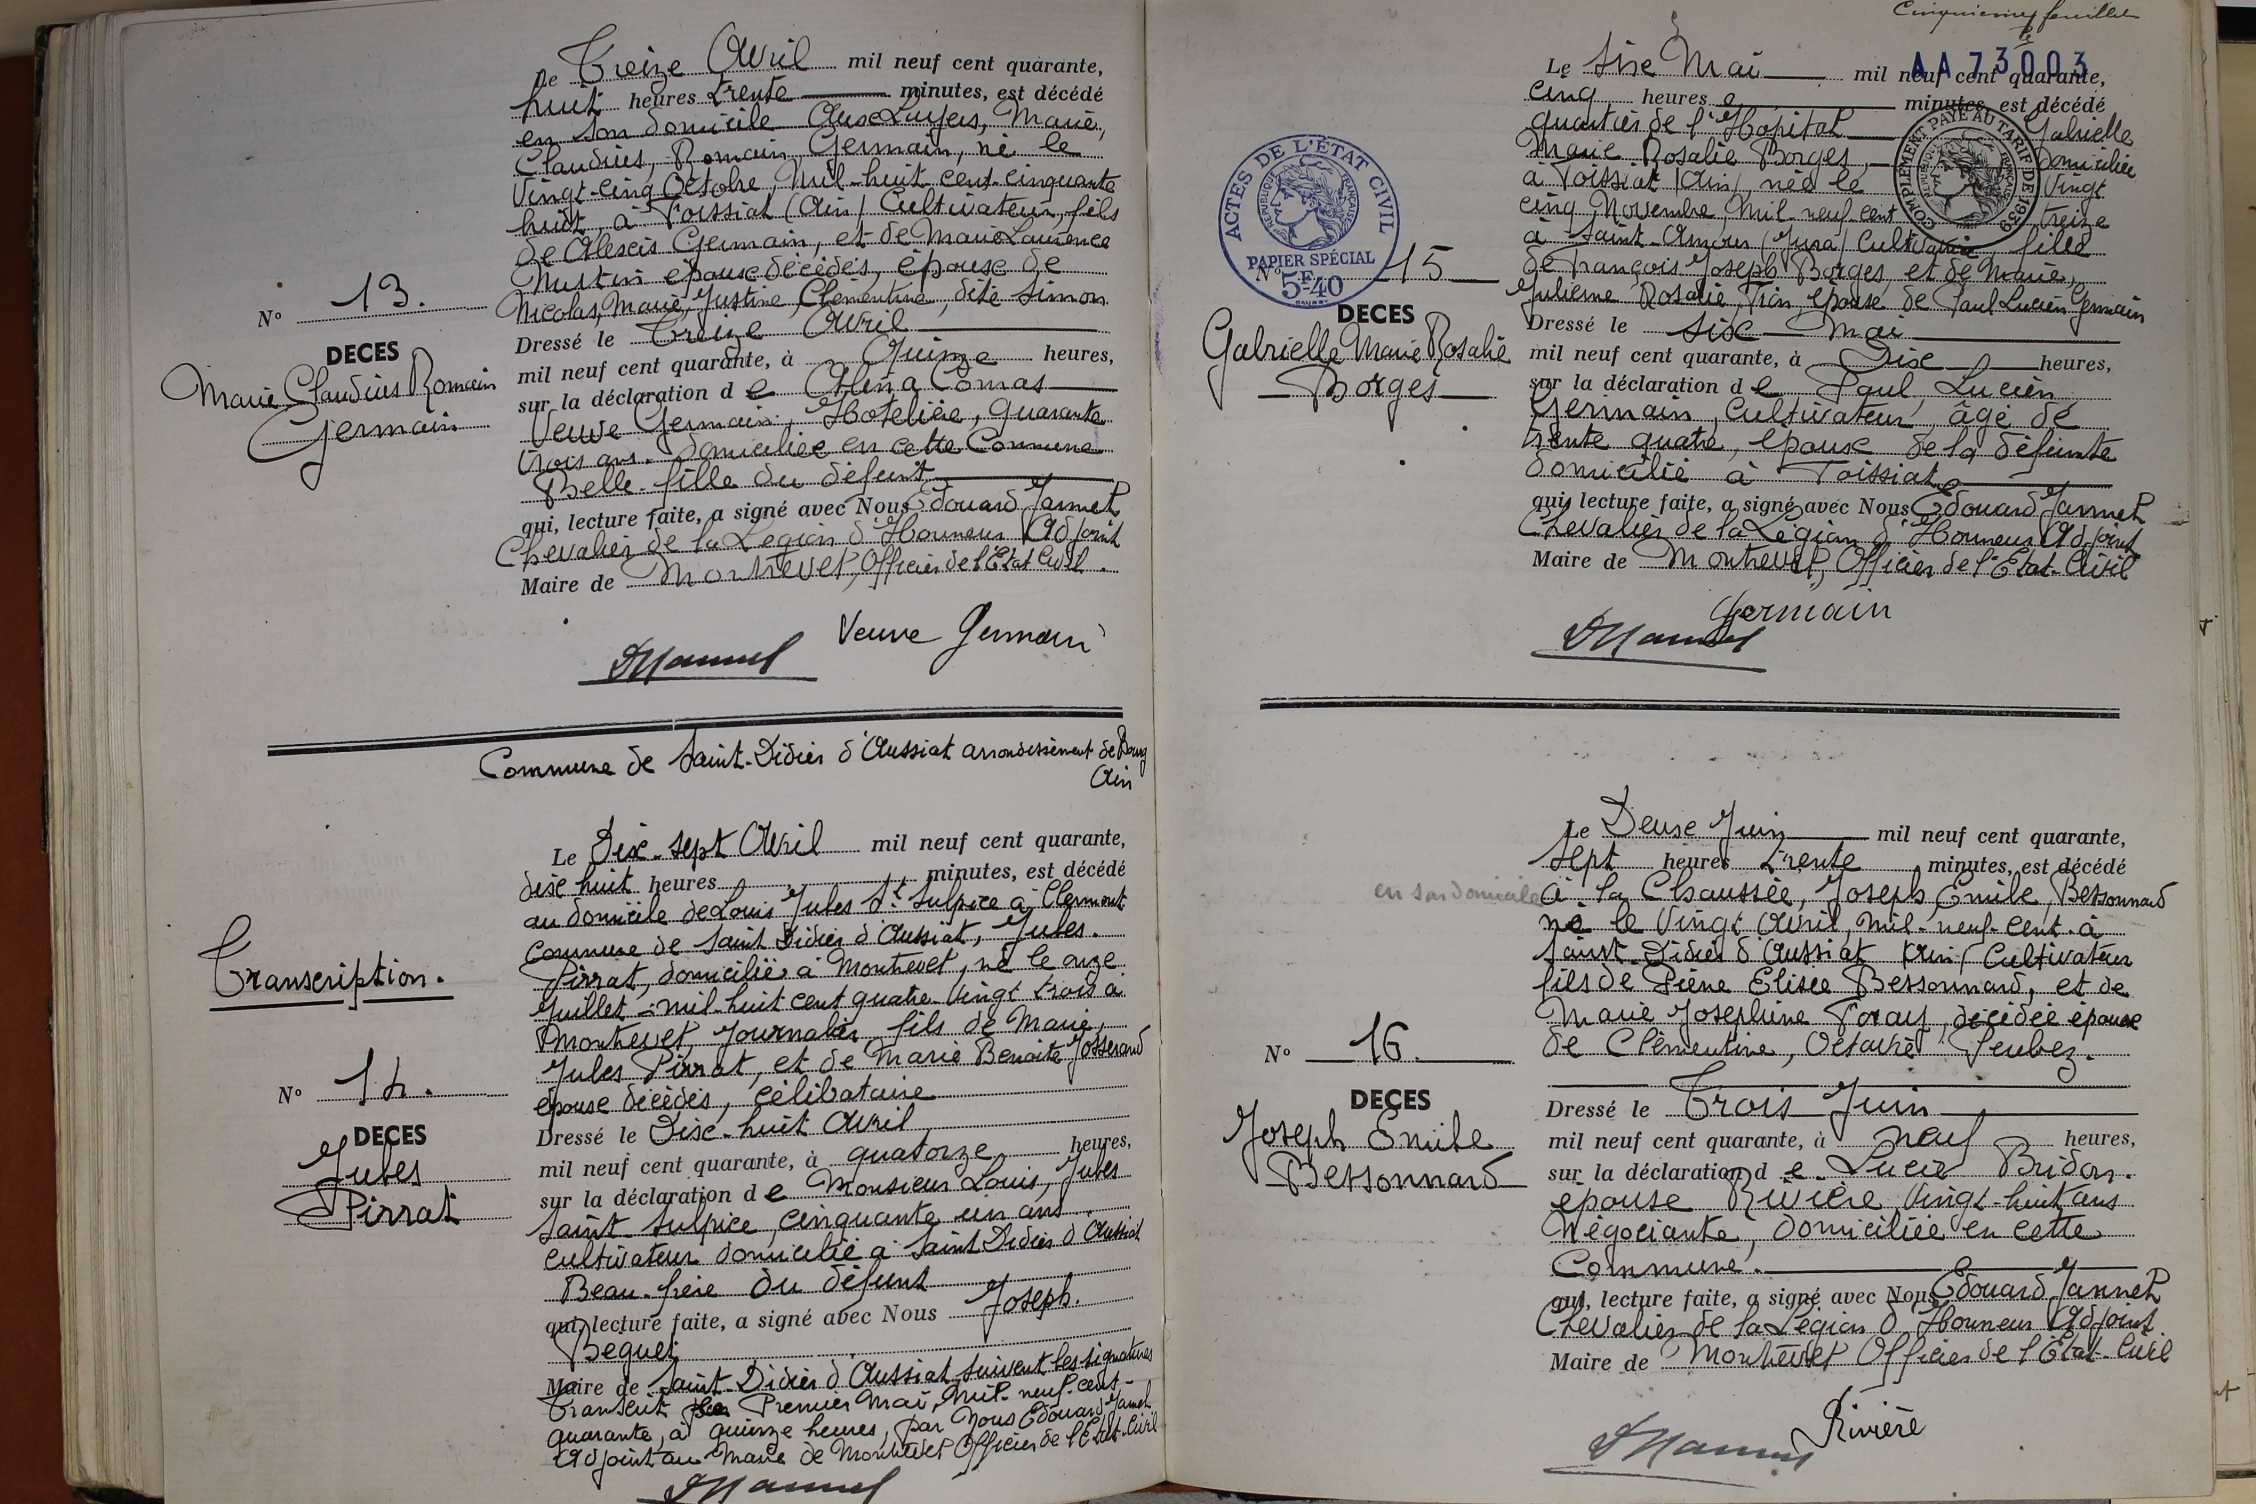 Le Treize Avril mil neuf cent quarante,
huit heures trente minutes, est décédé
en son domicile Aux Luyers, Marie,
Claudius, Romain, Germain, né le
Vingt-cinq Octobre, Mil-huit cent-cinquante
huit, à Foissiat (Ain) Cultivateur, fils
de Alexis Germain, et de Marie Laurence
épouse décédés, épouse de
Nicolas, Marie, Justine, Clémentine, dite Simon
N° 13.
DECES
Marie Claudius Romain
Germain
Dressé le Treize Avril
mil neuf cent quarante, à Quinze heures,
sur la déclaration de Comas
Veuve Germain, Hotelière, Quarante
trois ans. domiciliée en cette Commune
Belle-fille du défunt
qui, lecture faite, a signé avec Nous Edouard Jannet
Chevalier de la Légion d'Honneur Adjoint
Maire de Montrevel, Officier de l'Etat Civil.
Veuve Germain
Commune de Saint-Didier d'Aussiat arrondissement de Bourg
Ain
Le Dix-sept Avril mil neuf cent quarante,
dix huit heures minutes, est décédé
au domicile de Louis Jules St Sulpice à Clermont
Commune de Saint Didier d'Aussiat, Jules.
Pirrat, domicilié à Montrevel, né le onze
Juillet mil-huit cent quatre-Vingt trois à
Montrevel, Journalier, fils de Marie,
Jules Pirrat, et de Marie Benoite Josserand
épouse décédés, célibataire
Transcription.
N° 14.
DECES
Jules
Pirrat
Dressé le Dix-huit Avril
mil neuf cent quarante, à quatorze heures,
sur la déclaration de Monsieur Louis, Jules
Saint Sulpice, cinquante un ans
cultivateur domicilié à Saint Didier d'Aussiat
Beau-frère du défunt
qui, lecture faite, a signé avec Nous Joseph.
Beguet
Maire de Saint-Didier d'Aussiat suivent les signatures
Transcrit Premier Mai, Mil-neuf-cent-
quarante, à quinze heures, par Nous Edouard Jannet
Adjoint au Maire de Montrevel Officier de l'Etat-Civil
Cinquième feuillet
AA 73003
Le Six Mai mil neuf cent quarante,
cinq heures minutes, est décédé
quartier de l'Hopital Gabrielle
Marie Rosalie Borges, domiciliée
à Foissiat (Ain), née le Vingt
cinq Novembre, Mil-neuf-cent treize
à Saint-Amour (Jura) Cultivatrice fille
de François Joseph Borges, et de Marie,
Julienne Rosalie, épouse de Paul Lucien Germain
COMPLÉMENT PAYÉ AU TARIF DE 1939
RÉPUBLIQUE FRANÇAISE
ACTES DE L'ÉTAT CIVIL
RÉPUBLIQUE FRANÇAISE
PAPIER SPÉCIAL
5F40
N° 15
DECES
Gabrielle Marie Rosalie
Borges
Dressé le six Mai
mil neuf cent quarante, à Dix heures,
sur la déclaration de Paul Lucien
Germain, Cultivateur, âgé de
trente quatre, épouse de la défunte
domicilié à Foissiat
qui, lecture faite, a signé avec Nous Edouard Jannet
Chevalier de la Légion d'Honneur Adjoint
Maire de Montrevel, Officier de l'Etat-Civil
Germain
Le Deux Juin mil neuf cent quarante,
Sept heures trente minutes, est décédé
en son domicile à la Chaussée, Joseph Emile, Bessonnard
né le Vingt Avril, Mil-neuf-cent-à
Saint-Didier d'Aussiat (Ain) Cultivateur
fils de Pière Elisée Bessonnard, et de
Marie Josephine Foray, décédée épouse
de Clémentine, Octavie Peubez.
N° 16.
DECES
Joseph Emile
Bessonnard
Dressé le Trois Juin
mil neuf cent quarante, à neuf heures,
sur la déclaration de Lucie Bridon.
épouse Rivière Vingt-huit ans
Négociante, domiciliée en cette
Commune.
qui, lecture faite, a signé avec Nous Edouard Jannet
Chevalier de la Légion d'Honneur Adjoint
Maire de Montrevel Officier de l'Etat-Civil
Rivière